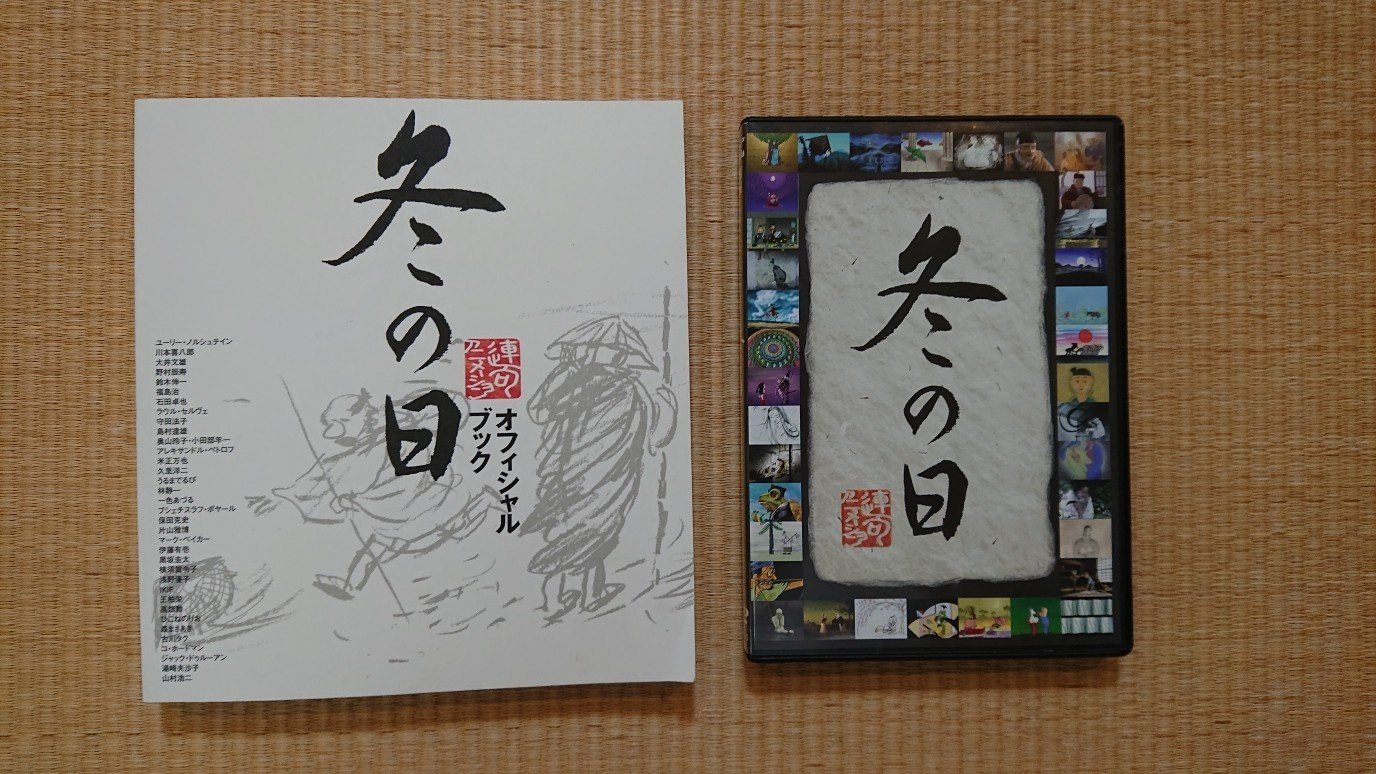 冬の日
連句
アニメーション
オフィシャル
ブック
ユーリー・ノルシュテイン
川本喜八郎
大井文雄
野村辰寿
鈴木伸一
福島治
石田卓也
ラウル・セルヴェ
守田法子
島村達雄
奥山玲子・小田部羊一
アレキサンドル・ペトロフ
米正万也
久里洋二
うるまでるび
林静一
一色あづる
ブシェチスラフ・ポヤール
保田克史
片山雅博
マーク・ベイカー
伊藤有壱
黒坂圭太
横須賀令子
浅野優子
IKIF
王柏栄
高畑勲
ひこねのりお
森まさあき
古川タク
コ・ホードマン
ジャック・ドゥルーアン
湯崎夫沙子
山村浩二
冬の日
連句
アニメーション